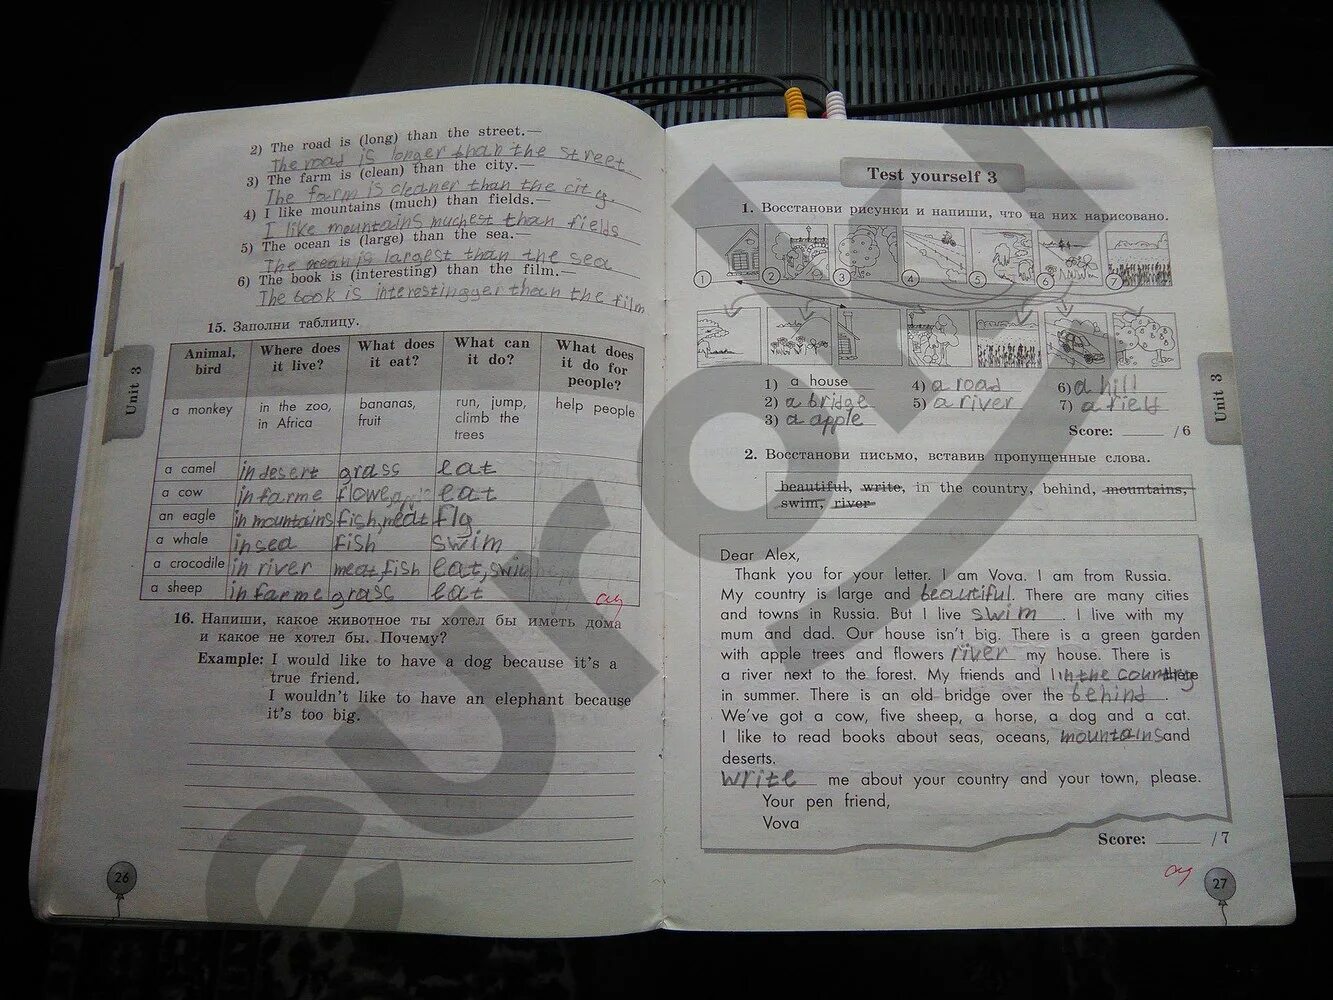 2) The road is (long) than the street.—
The road is longer than the street
3) The farm is (clean) than the city.—
The farm is cleaner than the city.
4) I like mountains (much) than fields.—
I like mountains muchest than fields
5) The ocean is (large) than the sea.—
The ocean is largest than the sea
6) The book is (interesting) than the film.—
The book is interestingger than the film
15. Заполни таблицу.
Animal, bird Where does it live? What does it eat? What can it do? What does it do for people?
a monkey in the zoo, in Africa bananas, fruit run, jump, climb the trees help people
a camel in desert grass eat
a cow in farme flowe eat
an eagle in mountains fish, meat fly
a whale in sea fish swim
a crocodile in river meat, fish eat, swim
a sheep in farme grass eat
16. Напиши, какое животное ты хотел бы иметь дома
и какое не хотел бы. Почему?
Example: I would like to have a dog because it's a
true friend.
I wouldn't like to have an elephant because
it's too big.
Unit 3
26
Test yourself 3
1. Восстанови рисунки и напиши, что на них нарисовано.
1 2 3 4 5 6 7
1) a house 4) a road 6) a hill
2) a bridge 5) a river 7) a field
3) a apple
Score: /6
2. Восстанови письмо, вставив пропущенные слова.
beautiful, write, in the country, behind, mountains,
swim, river
Dear Alex,
Thank you for your letter. I am Vova. I am from Russia.
My country is large and beautiful. There are many cities
and towns in Russia. But I live swim. I live with my
mum and dad. Our house isn't big. There is a green garden
with apple trees and flowers river my house. There is
a river next to the forest. My friends and I in the country there
in summer. There is an old bridge over the behind.
We've got a cow, five sheep, a horse, a dog and a cat.
I like to read books about seas, oceans, mountains and
deserts.
write me about your country and your town, please.
Your pen friend,
Vova
Score: /7
Unit 3
27
euroki